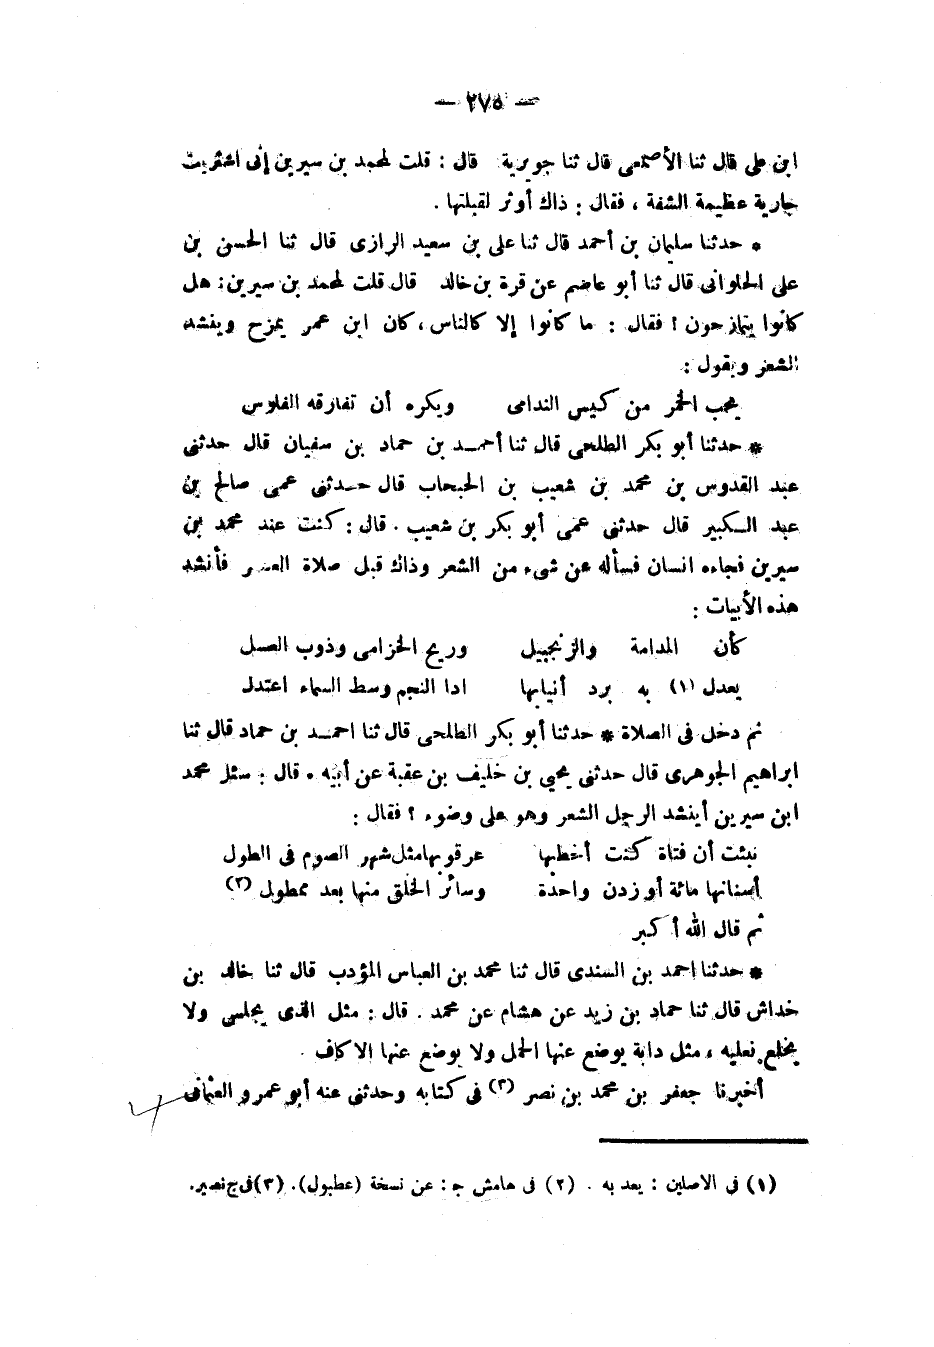 — ٢٧٥ —
ابن على قال ثنا الأصمعى قال ثنا جويرية قال : قلت لمحمد بن سيرين إنى اشتريت
جارية عظيمة الشفة ، فقال : ذاك أوثر لقبلتها .
* حدثنا سليمان بن أحمد قال ثنا على بن سعيد الرازى قال ثنا الحسن بن
على الحلوانى قال ثنا أبو عاصم عن قرة بن خالد قال قلت لمحمد بن سيرين : هل
كانوا يتمازحون ؟ فقال : ما كانوا إلا كالناس ، كان ابن عمر يمزح وينشد
الشعر ويقول :
يحب الخمر من كيس الندامى ويكره أن تفارقه الفلوس
* حدثنا أبو بكر الطلحى قال ثنا أحمد بن حماد بن سفيان قال حدثنى
عبد القدوس بن محمد بن شعيب بن الحبحاب قال حدثنى عمى صالح بن
عبد الكبير قال حدثنى عمى أبو بكر بن شعيب . قال : كنت عند محمد بن
سيرين فجاءه انسان فسأله عن شىء من الشعر وذاك قبل صلاة العصر فأنشد
هذه الأبيات :
كأن المدامة والزنجبيل وريح الخزامى وذوب العسل
يعدل (١) به برد أنيابها اذا النجم وسط السماء اعتدل
ثم دخل فى الصلاة * حدثنا أبو بكر الطلحى قال ثنا احمد بن حماد قال ثنا
ابراهيم الجوهرى قال حدثنى يحيى بن خليف بن عقبة عن أبيه . قال : سئل محمد
ابن سيرين أينشد الرجل الشعر وهو على وضوء ؟ فقال :
نبئت أن فتاة كنت أخطبها عرقوبها مثل شهر الصوم فى الطول
أسنانها مائة أو زدن واحدة وسائر الخلق منها بعد ممطول (٢)
ثم قال الله أكبر
* حدثنا احمد بن السندى قال ثنا محمد بن العباس المؤدب قال ثنا خالد بن
خداش قال ثنا حماد بن زيد عن هشام عن محمد . قال : مثل الذى يجلس ولا
يخلع نعليه ، مثل دابة يوضع عنها الحمل ولا يوضع عنها الاكاف .
أخبرنا جعفر بن محمد بن نصر (٣) فى كتابه وحدثنى عنه أبو عمرو العثمانى
(١) فى الاصلين : يعد به . (٢) فى هامش ج : عن نسخة (عطبول). (٣) فى ج نصير.